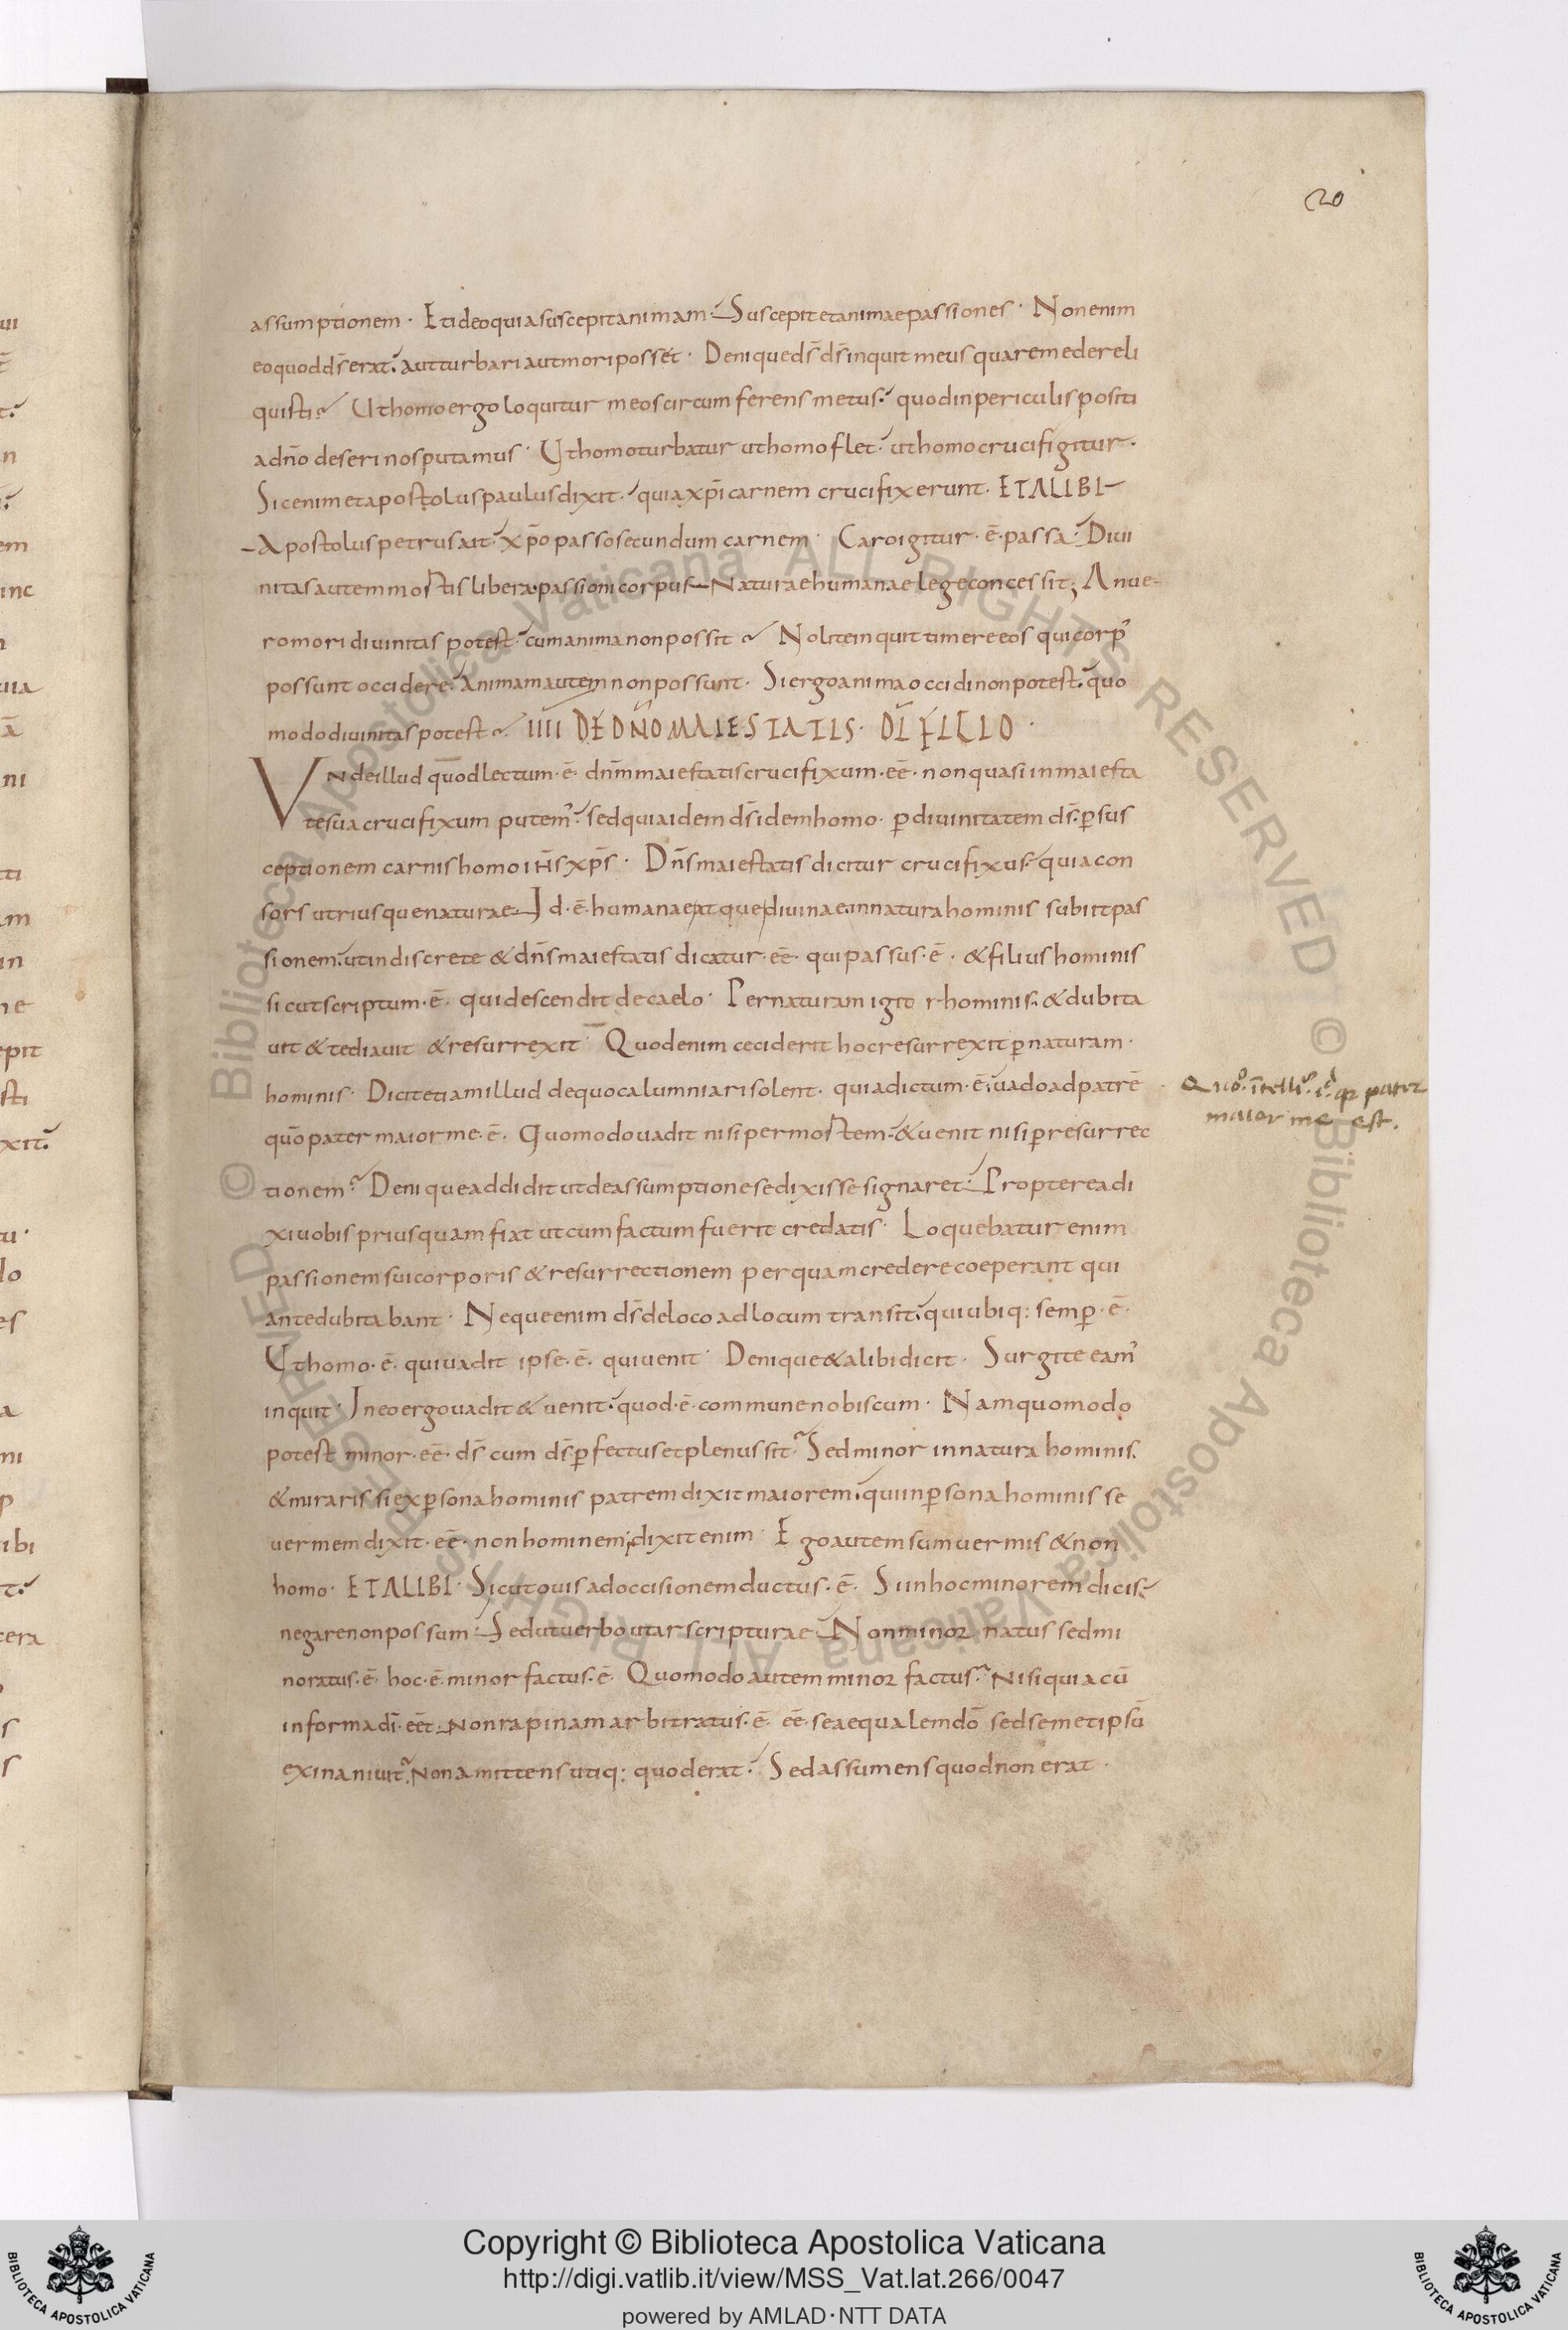 20
assumptionem · Et ideo quia suscepit animam · Suscepit et animae passiones · Non enim
eo quod ds̄ erat · aut turbari aut mori posset · Denique ds̄ ds̄ inquit meus quare me dereli
quisti · Ut homo ergo loquitur meos circumferens metus · quod in periculis positi
a dn̄o deseri nos putamus · Ut homo turbatur ut homo flet · ut homo crucifigitur ·
Sic enim et apostolus paulus dixit · quia xp̄i carnem crucifixerunt · ET ALIBI
Apostolus petrus ait · xp̄o passo secundum carnem · Caro igitur · ē · passa · Diui
nitas autem mortis libera · passioni corpus Naturae humanae lege concessit; An ue
ro mori diuinitas potest · cum anima non possit · Nolite inquit timere eos qui corp᾽
possunt occidere · Animam autem non possunt · Si ergo anima occidi non potest · quo
modo diuinitas potest · IIII DE DN̄O MAIESTATIS · DĪ FILIO ·
Unde illud quod lectum · ē · dn̄m maiestatis crucifixum · eē · non quasi in maiesta
te sua crucifixum putem᾽ · sed quia idem ds̄ idem homo · ꝑ diuinitatem ds̄ · ꝑ sus
ceptionem carnis homo ih̄s xp̄s · Dn̄s maiestatis dicitur crucifixus · quia con
sors utriusque naturae · Id · ē · humanae atque diuinae in natura hominis subiit pas
sionem · ut indiscrete & dn̄s maiestatis dicatur · eē · qui passus · ē · & filius hominis
sicut scriptum · ē · qui descendit de caelo · Per naturam igitur hominis · & dubita
uit & tediauit & resurrexit · Quod enim ceciderit hoc resurrexit ꝑ naturam ·
hominis · Dicit etiam illud de quo calumniari solent · quia dictum · ē · uado ad patrē
quō pater maior me · ē · Quomodo uadit nisi per mortem · & uenit nisi ꝑ resurrec
tionem · Denique addidit ut de assumptione se dixisse signaret · Propterea di
xi uobis priusquam fiat ut cum factum fuerit credatis · Loquebatur enim
passionem sui corporis & resurrectionem per quam credere coeperant qui
ante dubitabant · Neque enim ds̄ de loco ad locum transit · qui ubiq: semꝑ · ē ·
Ut homo · ē · qui uadit ipse · ē · qui uenit · Denique & alibi dicit · Surgite eam᾽
inquit · In eo ergo uadit & uenit · quod · ē · commune nobiscum · Nam quomodo
potest minor · eē · ds̄ cum ds̄ ꝑfectus et plenus sit · Sed minor in natura hominis ·
& miraris si ex ꝑsona hominis patrem dixit maiorem · qui in ꝑsona hominis se
uermem dixit · eē · non hominem · dixit enim · Ego autem sum uermis & non
homo · ET ALIBI · Sicut ouis ad occisionem ductus · ē · Si in hoc minorem dicis ·
negare non possum · Sed ut uerbo utar scripturae · Non minor natus sed mi
noratus · ē · hoc · ē · minor factus · ē · Quomodo autem minor factus · Nisi quia cū
in forma dī · eēt · Non rapinam arbitratus · ē · eē · se aequalem dō sed semetipsū
exinaniuit · Non amittens utiq: quod erat · Sed assumens quod non erat ·
pater
maior me est.
© Biblioteca Apostolica Vaticana ALL RIGHTS RESERVED
© Biblioteca Apostolica Vaticana ALL RIGHTS RESERVED
Copyright © Biblioteca Apostolica Vaticana
http://digi.vatlib.it/view/MSS_Vat.lat.266/0047
powered by AMLAD·NTT DATA
BIBLIOTECA APOSTOLICA VATICANA
BIBLIOTECA APOSTOLICA VATICANA